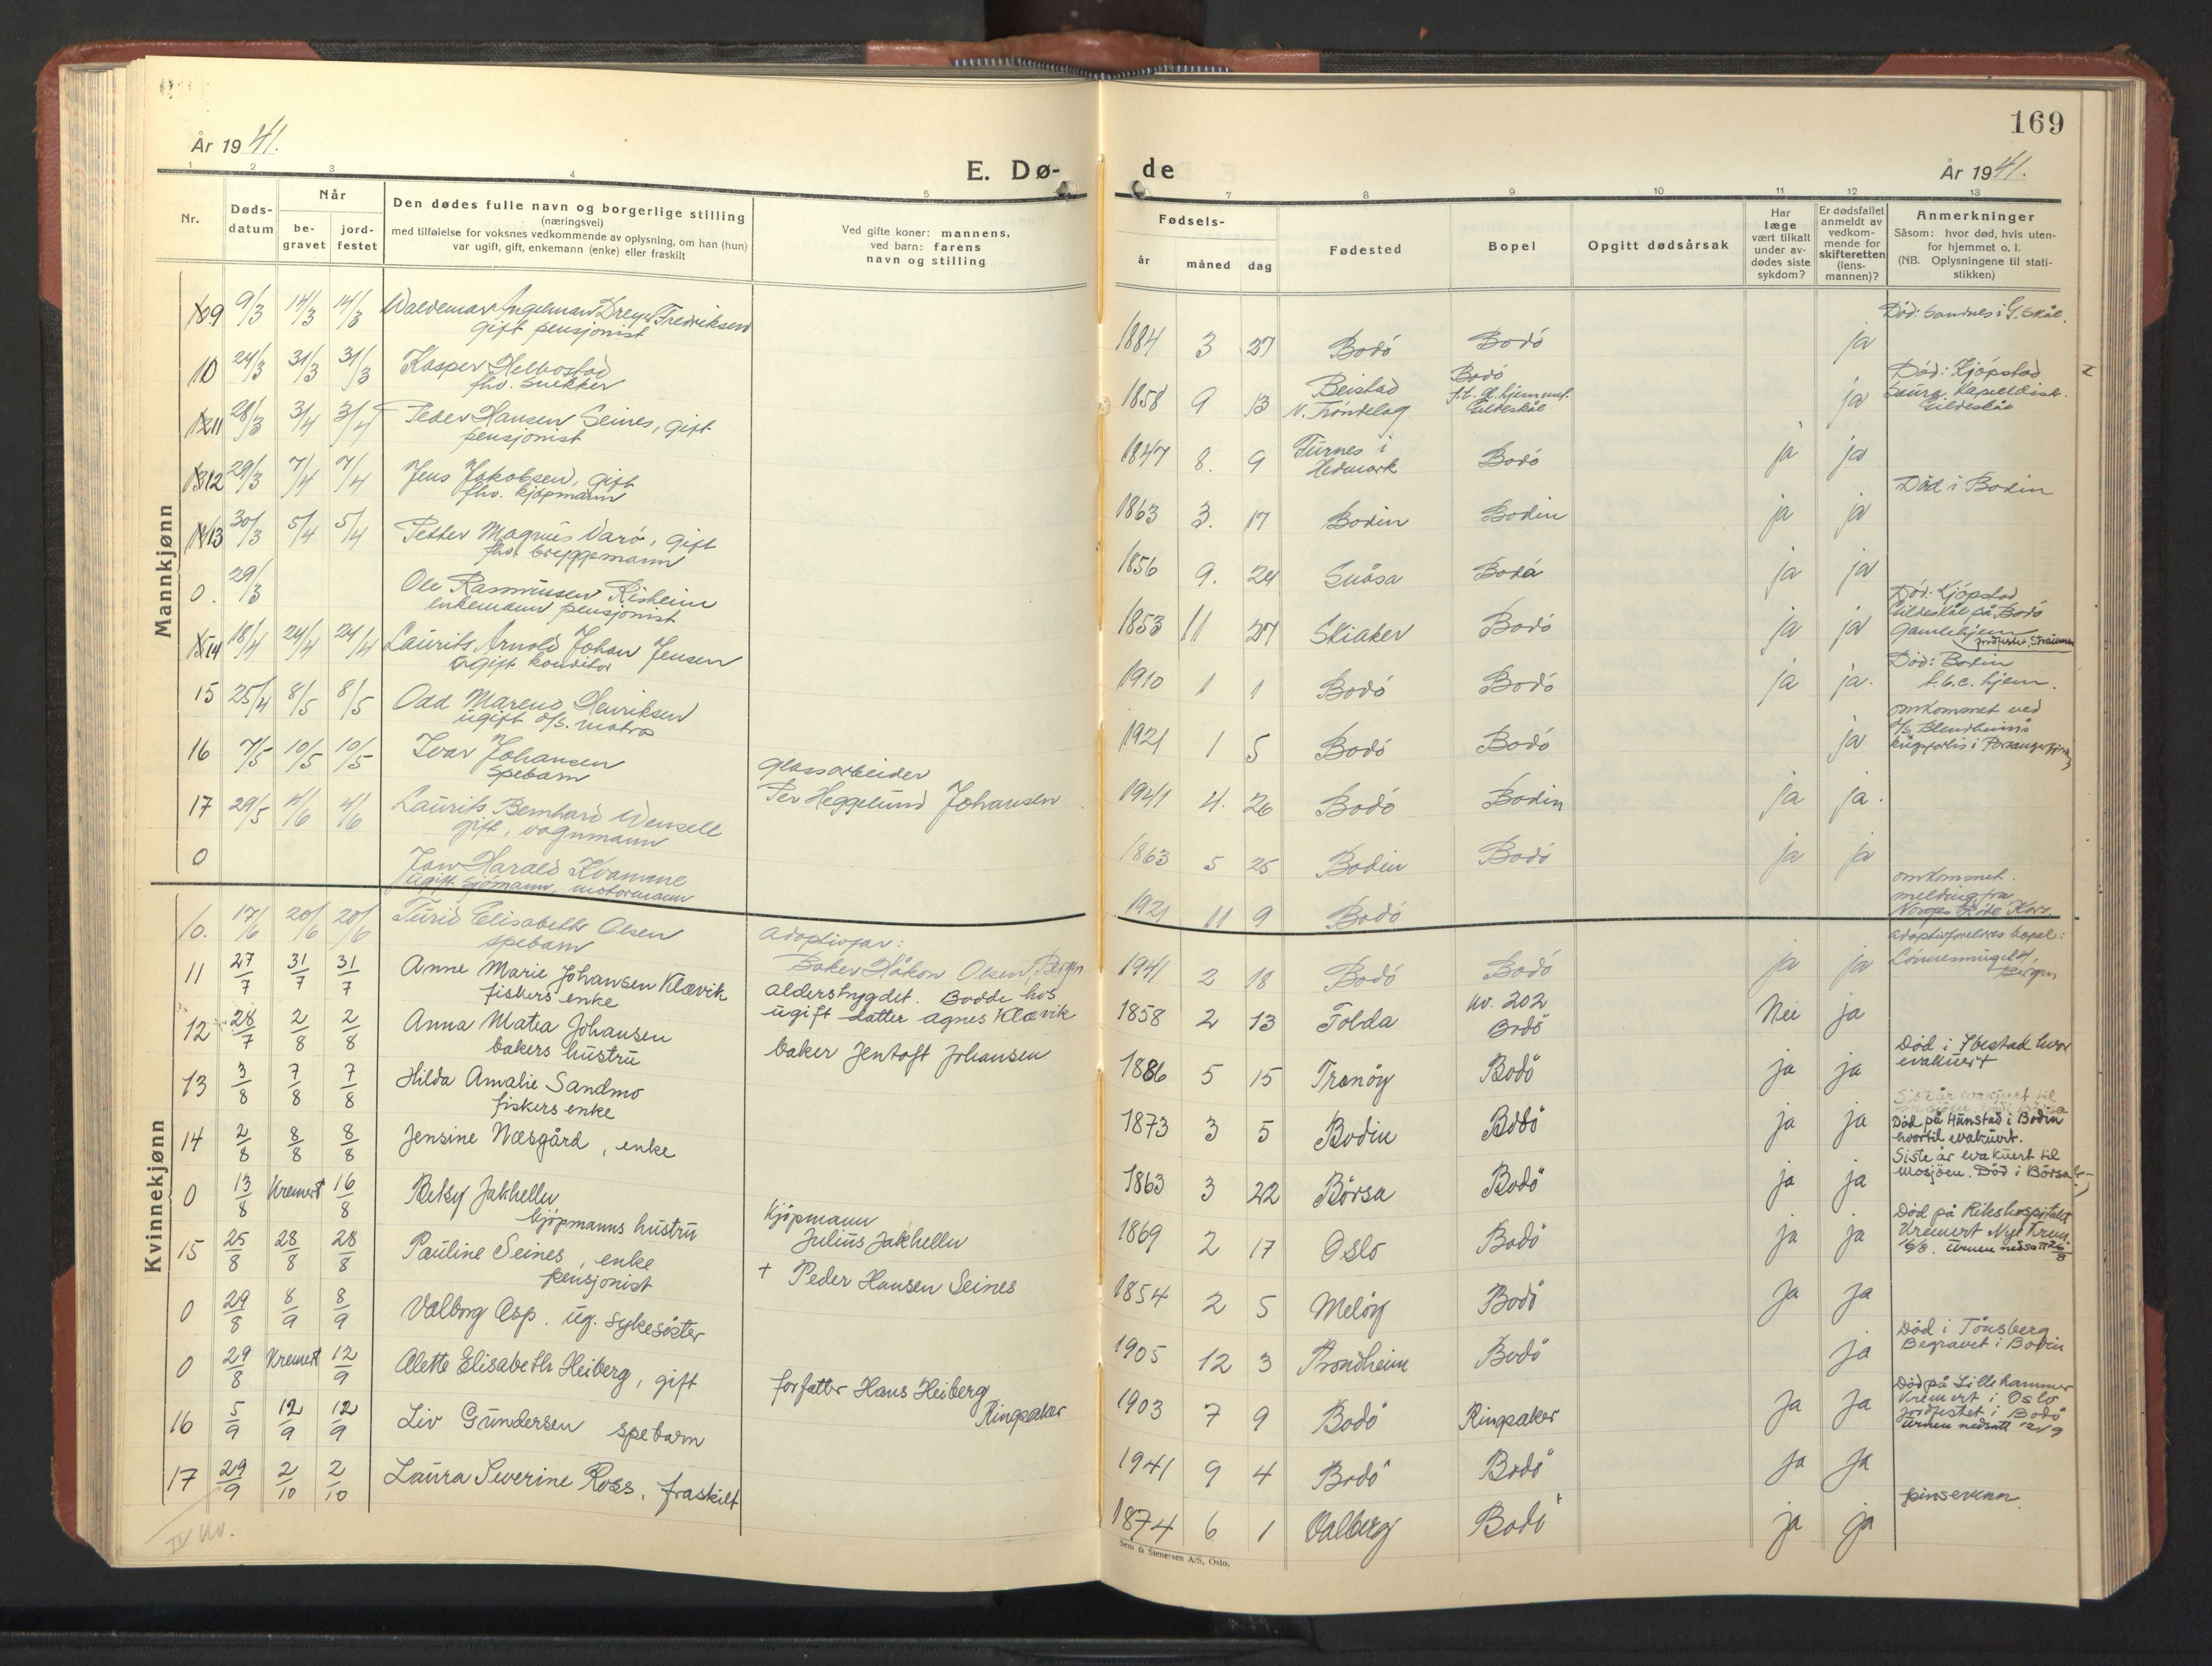 169
År 1941.
E. Dø-
de
År 1941.
1 2 3 4 5 7 8 9 10 11 12 13
Nr.
Døds-
datum
Når
be-
gravet
jord-
festet
Den dødes fulle navn og borgerlige stilling
(næringsvei)
med tilføielse for voksnes vedkommende av oplysning, om han (hun)
var ugift, gift, enkemann (enke) eller fraskilt
Ved gifte koner: mannens,
ved barn: farens
navn og stilling
Fødsels-
år måned dag
Fødested
Bopel
Opgitt dødsårsak
Har
læge
vært tilkalt
under av-
dødes siste
sykdom?
Er dødsfallet
anmeldt av
vedkom-
mende for
skifteretten
(lens-
mannen)?
Anmerkninger
Såsom: hvor død, hvis uten-
for hjemmet o. l.
(NB. Oplysningene til stati-
stikken)
Mannkjønn
9 9/3 14/3 14/3 Waldemar Ingelman Dreyer Fredriksen
gift pensjonist
1884 3 27 Bodó Bodó ja
Død: Sandnes i G. Skål.
10 24/3 31/3 31/3 Kasper Helbostad
fhv. snekker
1858 9 13 Beistad
N. Tróndelag
Bodó
Gildeskål
ja
Død: Kjópstad
Gildeskål
11 28/3 3/4 3/4 Peder Hansen Seines, gift
pensjonist
1847 8. 9 Furnes i
Hedmark
Bodó ja ja
12 29/3 7/4 7/4 Jens Jakobsen, gift
fhv. kjópmann
1863 3. 17 Bodin Bodin ja ja
Død i Bodin
13 30/3 5/4 5/4 Petter Magnus Varó, gift
fhv. bryggemann
1856 9. 24 Snåsa Bodó ja ja
0. 29/3 Ole Rasmussen Risheim
enkemann pensjonist
1853 11 27 Skiaker Bodó ja ja
Død: Kjópstad
Gildeskål på Bodó
Gamlehjem
14 18/4 24/4 24/4 Laurits Arnold Johan Jensen
ugift konditor
1910 1 1 Bodó Bodó ja ja.
Død: Bodin
t.b.c. hjem.
15 25/4 8/5 8/5 Odd Mareno Henriksen
ugift matros
1921 1 5 Bodó Bodó ja
omkommet ved
krigsforlis i Porsangerfjord
16 7/5 10/5 10/5 Ivar Johansen
spebarn
Glassarbeider
Per Heggelund Johansen
1941 4. 26 Bodó Bodin ja ja.
17 29/5 4/6 4/6 Laurits Bernhard Wensell
gift, vognmann
1863 5 25 Bodin Bodó ja ja
0 Harald Kvamme
ugift sjömann, motormann
1921 11 9 Bodó
omkommet.
melding fra
Norges Röde Kors.
Kvinnekjønn
10. 17/6 20/6 20/6 Turid Elisabeth Olsen
spebarn
adoptivfar:
Baker Håkon Olsen, Bergen
1941 2 18 Bodó Bodó ja ja
adoptivforeldres bopel:
Bergen
11 27/7 31/7 31/7 Anne Marie Johansen Klævik
fiskers enke
alderstrygdet. Bodde hos
ugift datter Agnes Klævik
1858 2 13 Folda kv. 202
Bodö
Nei ja
12 28/7 2/8 2/8 Anna Matea Johansen
bakers hustru
baker Jentoft Johansen
1886 5 15 Tranöy Bodö ja ja
Död i Ibestad hvor
evakuert
13 3/8 7/8 7/8 Hilda Amalie Sandmo
fiskers enke
1873 3 5 Bodin Bodö ja ja
Död på Hunstad i Bodin
hvortil evakuert.
14 2/8 8/8 8/8 Jensine Næsgård, enke
1863 3 22 Börsa Bodö ja ja
Siste år evakuert til
Mosjöen. Död i Börsa
0 13/8 Kremert 16/8 Betsy Jakhelln
kjöpmanns hustru
Kjöpmann
Julius Jakhelln
1869 2 17 Oslo Bodö ja ja
Död på Rikshospitalet
Kremert Nye Krem.
16/8. Urnen nedsatt 26/8
15 25/8 28/8 28/8 Pauline Seines, enke
pensjonist
+ Peder Hansen Seines
1854 2 5 Melöy Bodö ja ja
0 29/8 8/9 8/9 Valborg Asp. ug. sykesöster
1905 12 3 Trondheim Bodö ja
Död i Tönsberg
Begravet i Bodin
0 29/8 Kremert 12/9 Alette Elisabeth Heiberg, gift
forfatter Hans Heiberg
Ringsaker
1903 7 9 Bodö Ringsaker ja ja
Död på Lillehammer
Kremert i Oslo
jordfestet i Bodö
Urnen nedsatt 12/9
16 5/9 12/9 12/9 Liv Gundersen spebarn
1941 9 4 Bodö Bodö ja ja
17 29/9 2/10 2/10 Laura Severine Ross, fraskilt
1874 6 1 Valberg Bodö ja ja
pinsevenn
IV kv.
Sem & Stenersen A/S, Oslo.